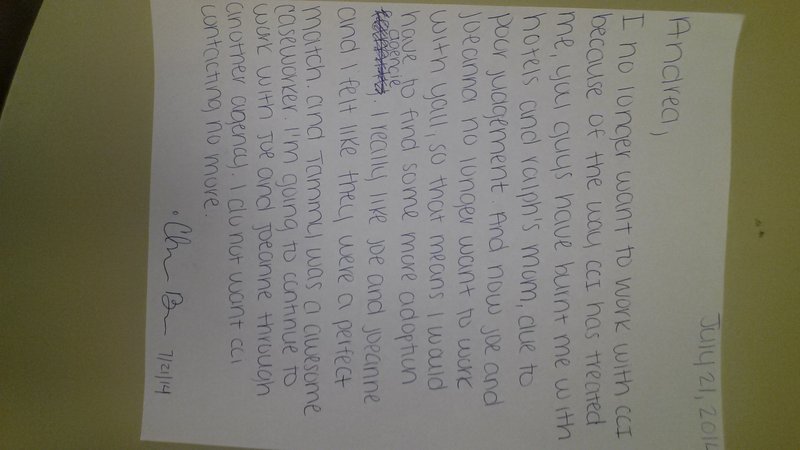 July 21, 201
Andrea,
I no longer want to work with CCI
because of the way CCI has treated
me, you guys have burnt me with
hotels and ralph's mom, due to
poor judgement. And now joe and
joeanna no longer want to work
with yall, so that means I would
have to find some more adoption
agencie. I really like joe and joeanne
and I felt like they were a perfect
match. and Tammy was a awesome
caseworker. I'm going to continue to
work with joe and joeanne through
another agency. I do not want cci
contacting no more.
7/21/14